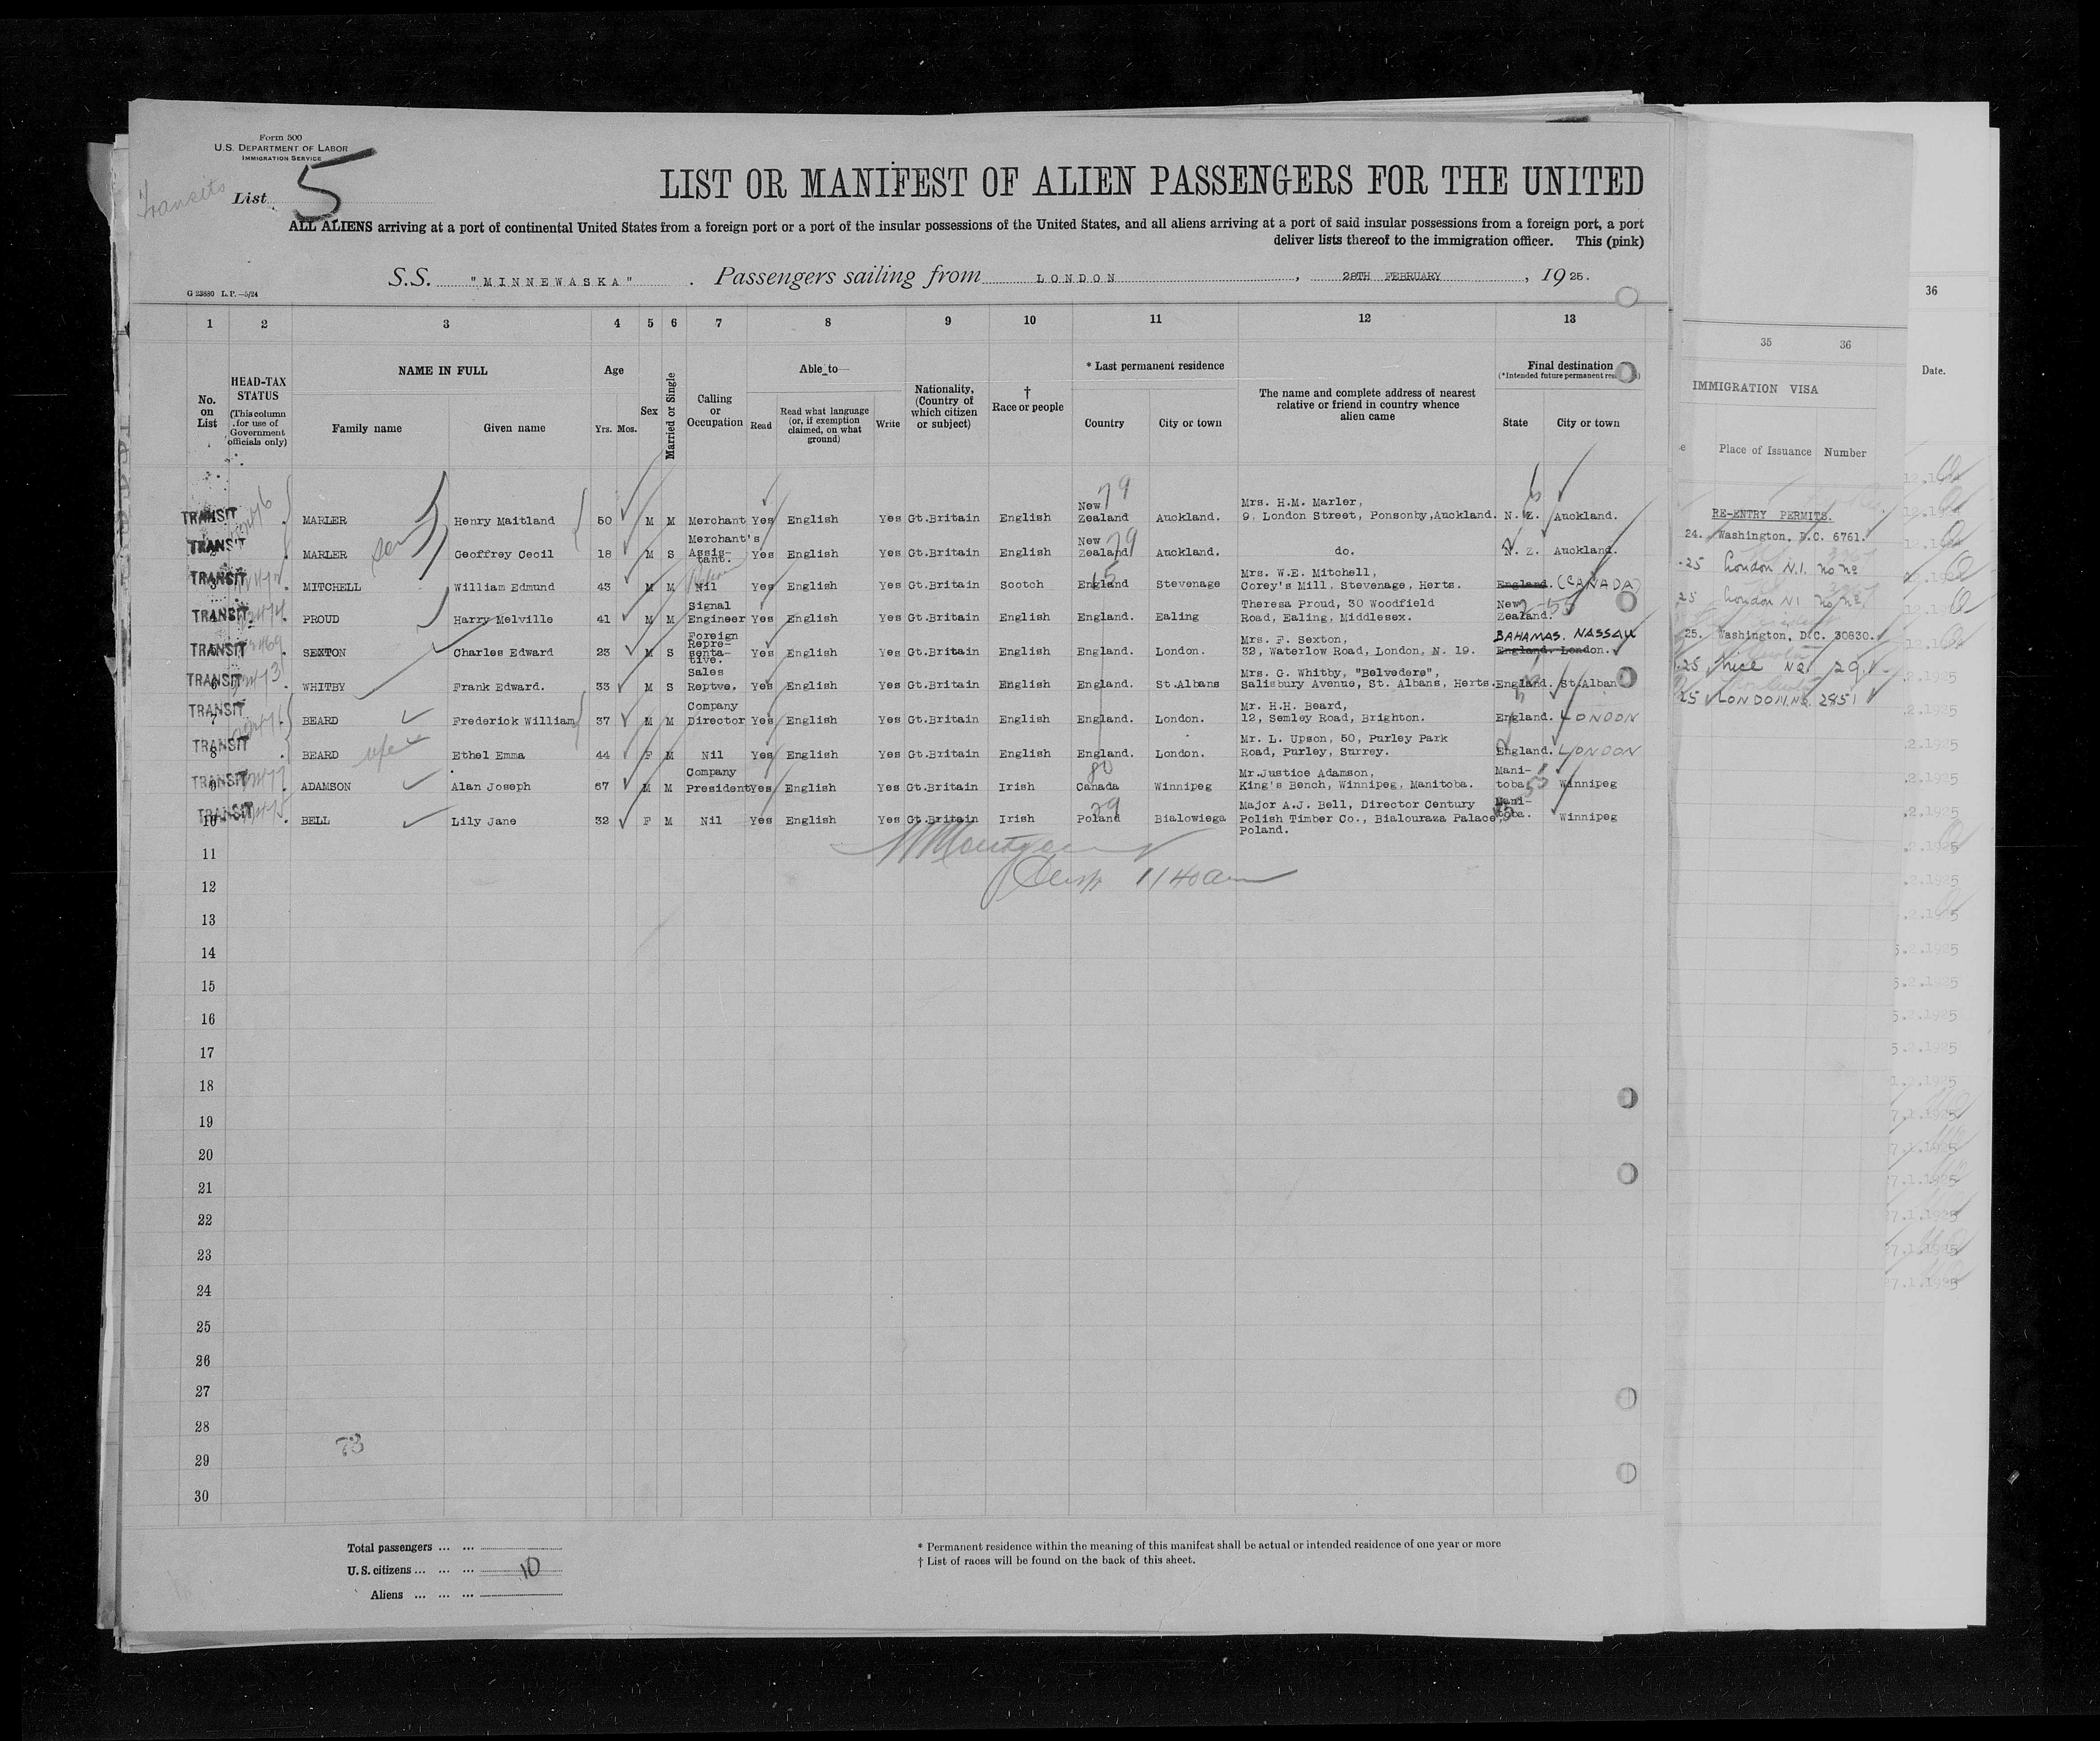 Form 500
U.S. DEPARTMENT OF LABOR
IMMIGRATION SERVICE
Transits
List 5
LIST OR MANIFEST OF ALIEN PASSENGERS FOR THE UNITED
ALL ALIENS arriving at a port of continental United States from a foreign port or a port of the insular possessions of the United States, and all aliens arriving at a port of said insular possessions from a foreign port, a port
deliver lists thereof to the immigration officer. This (pink)
S.S. "MINNEWASKA" . Passengers sailing from LONDON, 28TH FEBRUARY, 1925.
G 23880 L. P.—5/24
1 2 3 4 5 6 7 8 9 10 11 12 13
No. on List
HEAD-TAX STATUS (This column for use of Government officials only)
NAME IN FULL
Family name Given name
Age
Yrs. Mos.
Sex
Married or Single
Calling or Occupation
Able to—
Read Read what language (or, if exemption claimed, on what ground) Write
Nationality, (Country of which citizen or subject)
† Race or people
* Last permanent residence
Country City or town
The name and complete address of nearest relative or friend in country whence alien came
Final destination
(*Intended future permanent
State City or town
TRANSIT MARLER Henry Maitland 50 M M Merchant Yes English Yes Gt.Britain English New Zealand 79 Auckland. Mrs. H.M. Marler, 9, London Street, Ponsonby, Auckland. N. Z. Auckland.
TRANSIT MARLER son Geoffrey Cecil 18 M S Merchant's Assistant. Yes English Yes Gt.Britain English New Zealand 79 Auckland. do. N. Z. Auckland.
TRANSIT 3 MITCHELL William Edmund 43 M M Nil Yes English Yes Gt.Britain Scotch England 15 Stevenage Mrs. W.E. Mitchell, Corey's Mill, Stevenage, Herts. England. (CANADA)
TRANSIT 4 PROUD Harry Melville 41 M M Signal Engineer Yes English Yes Gt.Britain English England. Ealing Theresa Proud, 30 Woodfield Road, Ealing, Middlesex. New Zealand.
TRANSIT 5 SEXTON Charles Edward 23 M S Foreign Representative. Yes English Yes Gt.Britain English England. London. Mrs. F. Sexton, 32, Waterlow Road, London, N. 19. BAHAMAS. NASSAU England. London.
TRANSIT 6 WHITBY Frank Edward. 33 M S Sales Reptve. Yes English Yes Gt.Britain English England. St.Albans Mrs. G. Whitby, "Belvedere", Salisbury Avenue, St. Albans, Herts. England. St.Alban
TRANSIT 7 BEARD Frederick William 37 M M Company Director Yes English Yes Gt.Britain English England. London. Mr. H.H. Beard, 12, Semley Road, Brighton. England. LONDON
TRANSIT 8 BEARD wife Ethel Emma 44 F M Nil Yes English Yes Gt.Britain English England. London. Mr. L. Upson, 50, Purley Park Road, Purley, Surrey. England. LONDON
TRANSIT 9 ADAMSON Alan Joseph 67 M M Company President Yes English Yes Gt.Britain Irish Canada 80 Winnipeg Mr.Justice Adamson, King's Bench, Winnipeg, Manitoba. Manitoba Winnipeg
TRANSIT 10 BELL Lily Jane 32 F M Nil Yes English Yes Gt.Britain Irish Poland 29 Bialowiega Major A.J. Bell, Director Century Polish Timber Co., Bialouraza Palace, Poland. Manitoba. Winnipeg
11
12 1140am
13
14
15
16
17
18
19
20
21
22
23
24
25
26
27
28
73
29
30
Total passengers ... ...
U.S. citizens ... ... ... 10
Aliens ... ... ...
* Permanent residence within the meaning of this manifest shall be actual or intended residence of one year or more
† List of races will be found on the back of this sheet.
35 36
IMMIGRATION VISA
Place of Issuance Number
RE-ENTRY PERMITS.
24. Washington, D.C. 6761.
25 London N.I. No No
25 London NI No No
25. Washington, D.C. 30830.
25 Nice No 29.
25 LONDON. No. 2851
36
Date.